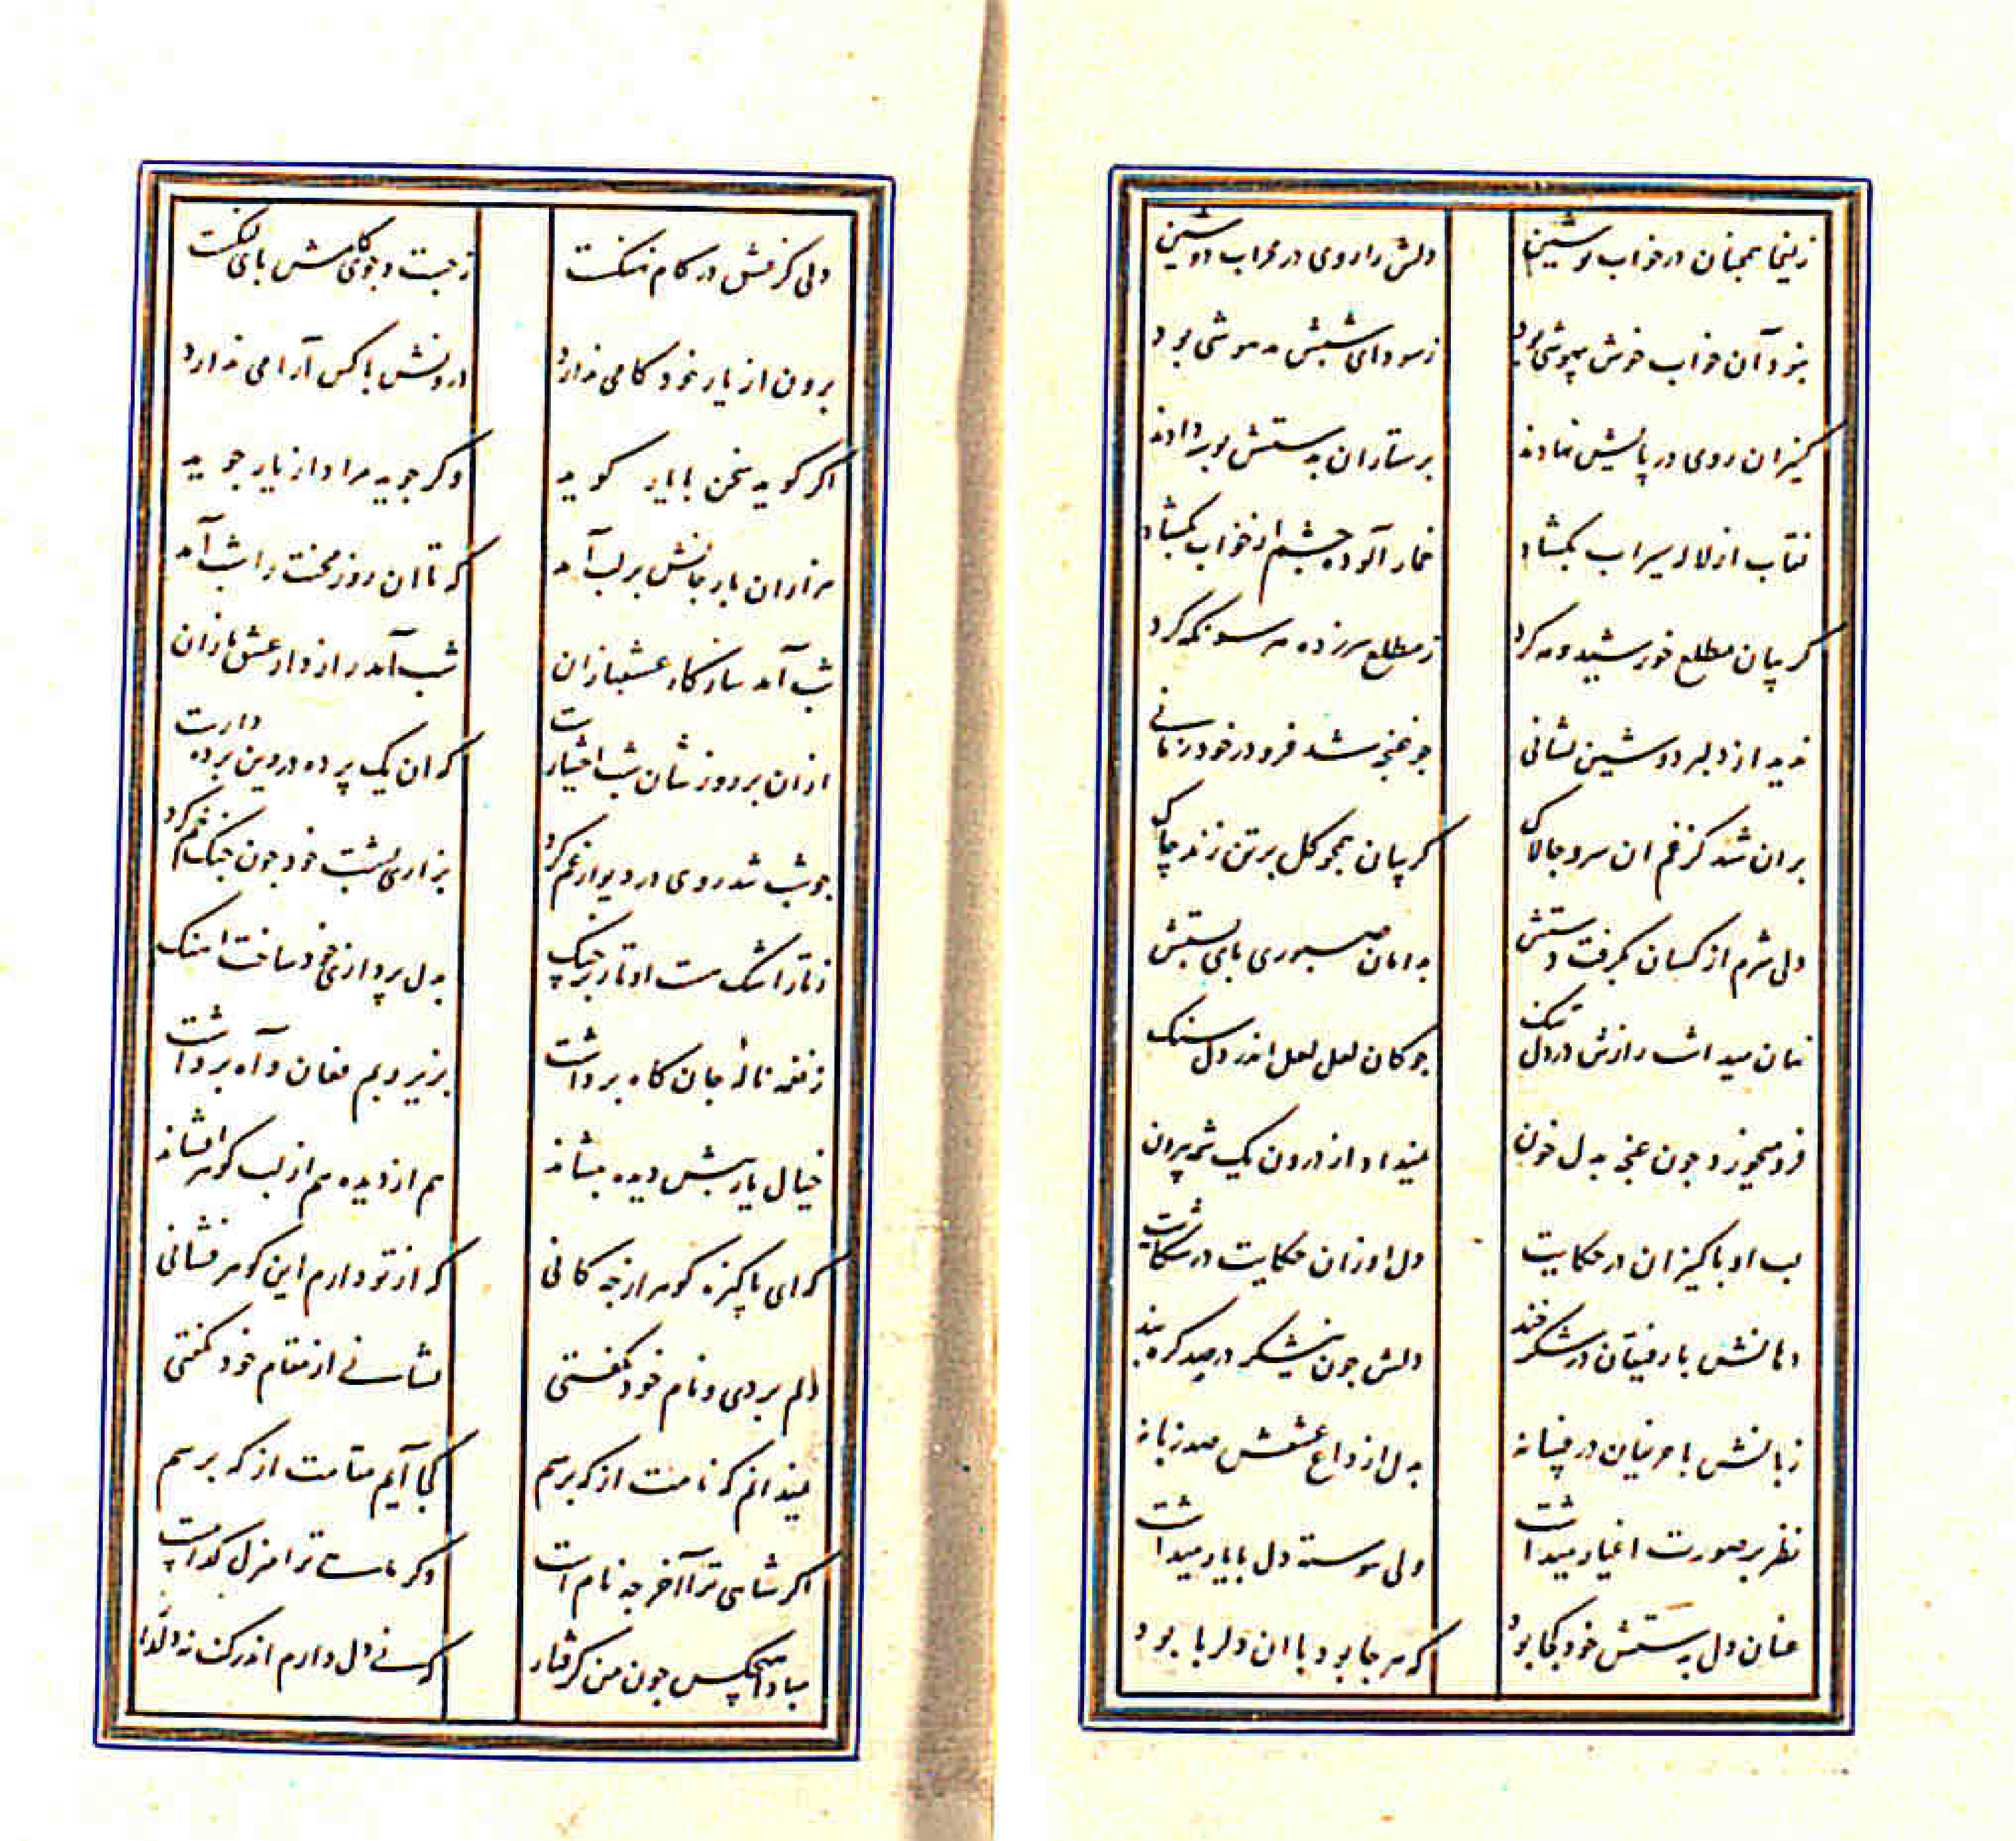 زلیخا همچنان در خواب نوشین دلش را روی در محراب دوشین
نبود آن خواب خوش بیهوشی بود ز سودای شبش مدهوشی بود
کنیزان روی در پایش نهادند پرستاران به دستش بوسه دادند
نقاب از لاله سیراب بکشاد خمار آلوده چشم از خواب بکشاد
کریبان مطلع خورشید و مه کرد ز مطلع سر زده هر سو نکه کرد
ندید از دلبر دوشین نشانی جو غنچه شد فرو در خود زمانی
بران شد کز غم ان سرو جالاک کریبان همجو کل بر تن زند جاک
ولی شرم از کسان بکرفت دستش به دامان صبوری بای بستش
نهان میداشت رازش در دل تنک جو کان لعل لعل اندر دل سنک
فرو میخورد جون غنجه به دل خون نمیداد از درون یک شمه بیرون
لب او با کنیزان در حکایت دل او زان حکایت در شکایت
دهانش با رفیقان در شکرخند دلش جون نیشکر در صد کره بند
زبانش با حریفان در فسانه به دل از داغ عشقش صد زبانه
نظر بر صورت اغیار میداشت ولی پیوسته دل با یار میداشت
عنان دل به دستش خود کجا بود که هر جا بود با ان دلربا بود
دلی کز عشق در کام نهنکست ز جست و جوی کامش بای لنکست
برون از یار خود کامی ندارد درونش با کس آرامی ندارد
اکر کوید سخن با یار کوید وکر جوید مراد از یار جوید
هزاران بار جانش بر لب آمد که تا ان روز محنت را شب آمد
شب آمد سازکار عشقبازان شب آمد رازدار عشقبازان
ازان بر روز شان شب اختیارست که ان یک برده در وین برده دارست
جو شب شد روی در دیوار غم کرد بزاری بشت خود جون جنک خم کرد
ز تار اشک بست اوتار بر جنک به دل بردازی خود ساخت اهنک
ز نغمه ناله جان کاه برداشت بزیر و بم فغان و آه برداشت
خیال یار بیش دیده بنشاند هم از دیده هم از لب کوهر افشاند
که ای باکیزه کوهر از جه کانی که از تو دارم این کوهر فشانی
دلم بردی و نام خود نکفتی نشانی از مقام خود نکفتی
نمیدانم که نامت از که برسم کجا آیم مقامت از که برسم
اکر شاهی ترا آخر جه نام است وکر ماهی ترا منزل کدام است
مبادا هیجکس جون من کرفتار که نی دل دارم اندر کف نه دلدار